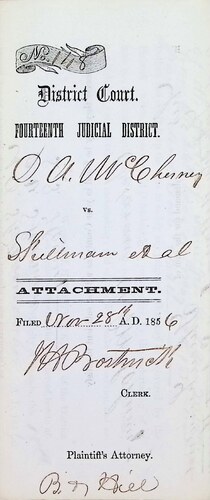 No. 1118
District Court.
FOURTEENTH JUDICIAL DISTRICT.
D. A. McChesney
vs.
Skillmam et al
ATTACHMENT.
FILED Nov 28th A. D. 1856
Bostwick
CLERK.
Plaintiff's Attorney.
Hill